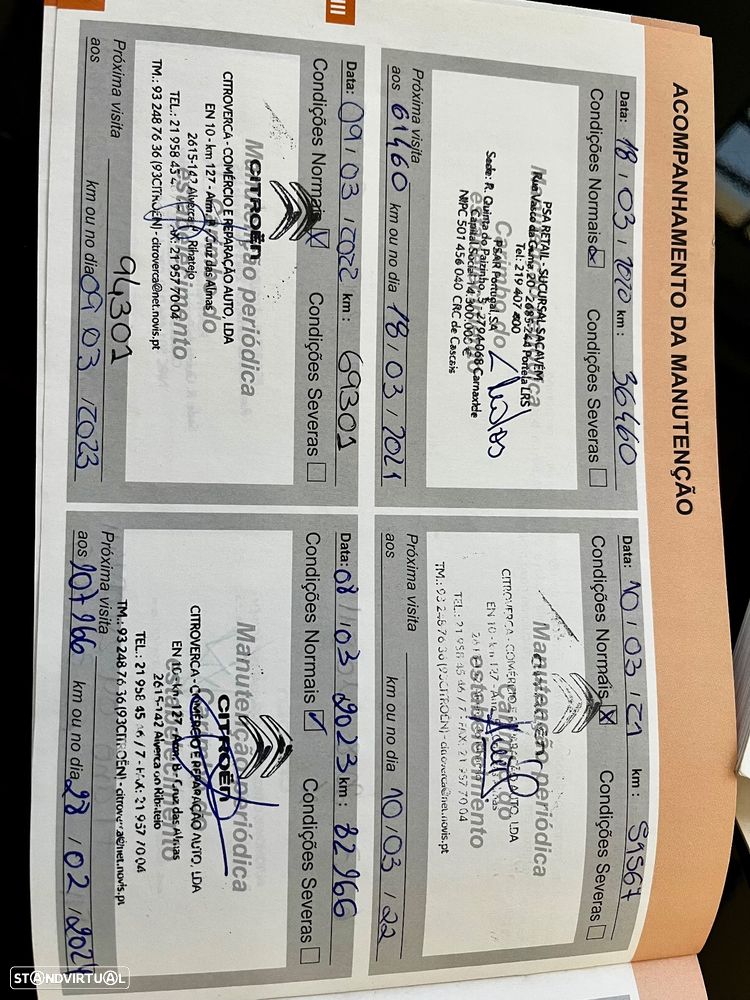 ACOMPANHAMENTO DA MANUTENÇÃO
Data: 18 / 03 / 2020 km : 36460
Condições Normais Condições Severas
Manutenção periódica
Carimbo do
estabelecimento
PSA RETAIL - SUCURSAL SACAVÉM
Rua Vasco da Gama, 20 - 2685-244 Portela LRS
Tel: 219 407 400
PSAR Portugal, SA
Sede: R. Quinta do Pairzinho, 5 - 2794-068 Carnaxide
NIPC 501 456 040 CRC de Cascais
Próxima visita
aos 61460 km ou no dia 18 / 03 / 2021
Data: 10 / 03 / 21 km : 59567
Condições Normais X Condições Severas
Manutenção periódica
Carimbo do
estabelecimento
CITROVERCA - COMÉRCIO E REPARAÇÃO AUTO, LDA
EN 10 - km 127
TEL.: 21 958 45 46 / 7 - FAX: 21 957 70 04
TM.: 93 248 76 36 (93CITROËN) - citroverca@net.novis.pt
Próxima visita
aos km ou no dia 10 / 03 / 22
Data: 09 / 03 / 2022 km : 69301
Condições Normais X Condições Severas
Manutenção periódica
Carimbo do
estabelecimento
CITROËN
CITROVERCA - COMÉRCIO E REPARAÇÃO AUTO, LDA
EN 10 - km 127 - Arm. B - Cruz das Almas
2615-142 Alverca do Ribatejo
TEL.: 21 958 45 FAX: 21 957 70 04
TM.: 93 248 76 36 (93CITROËN) - citroverca@net.novis.pt
Próxima visita 94301
aos km ou no dia 09 03 / 2023
Data: 08 / 03 2023 km : 82966
Condições Normais ✓ Condições Severas
Manutenção periódica
Carimbo do
estabelecimento
CITROËN
CITROVERCA - COMÉRCIO E REPARAÇÃO AUTO, LDA
EN 10 - km 127 - Arm. B - Cruz das Almas
2615-142 Alverca do Ribatejo
TEL.: 21 958 45 46 / 7 - FAX: 21 957 70 04
TM.: 93 248 76 36 (93CITROËN) - citroverca@net.novis.pt
Próxima visita
aos 107966 km ou no dia 28 / 02 / 2024
STANDVIRTUAL